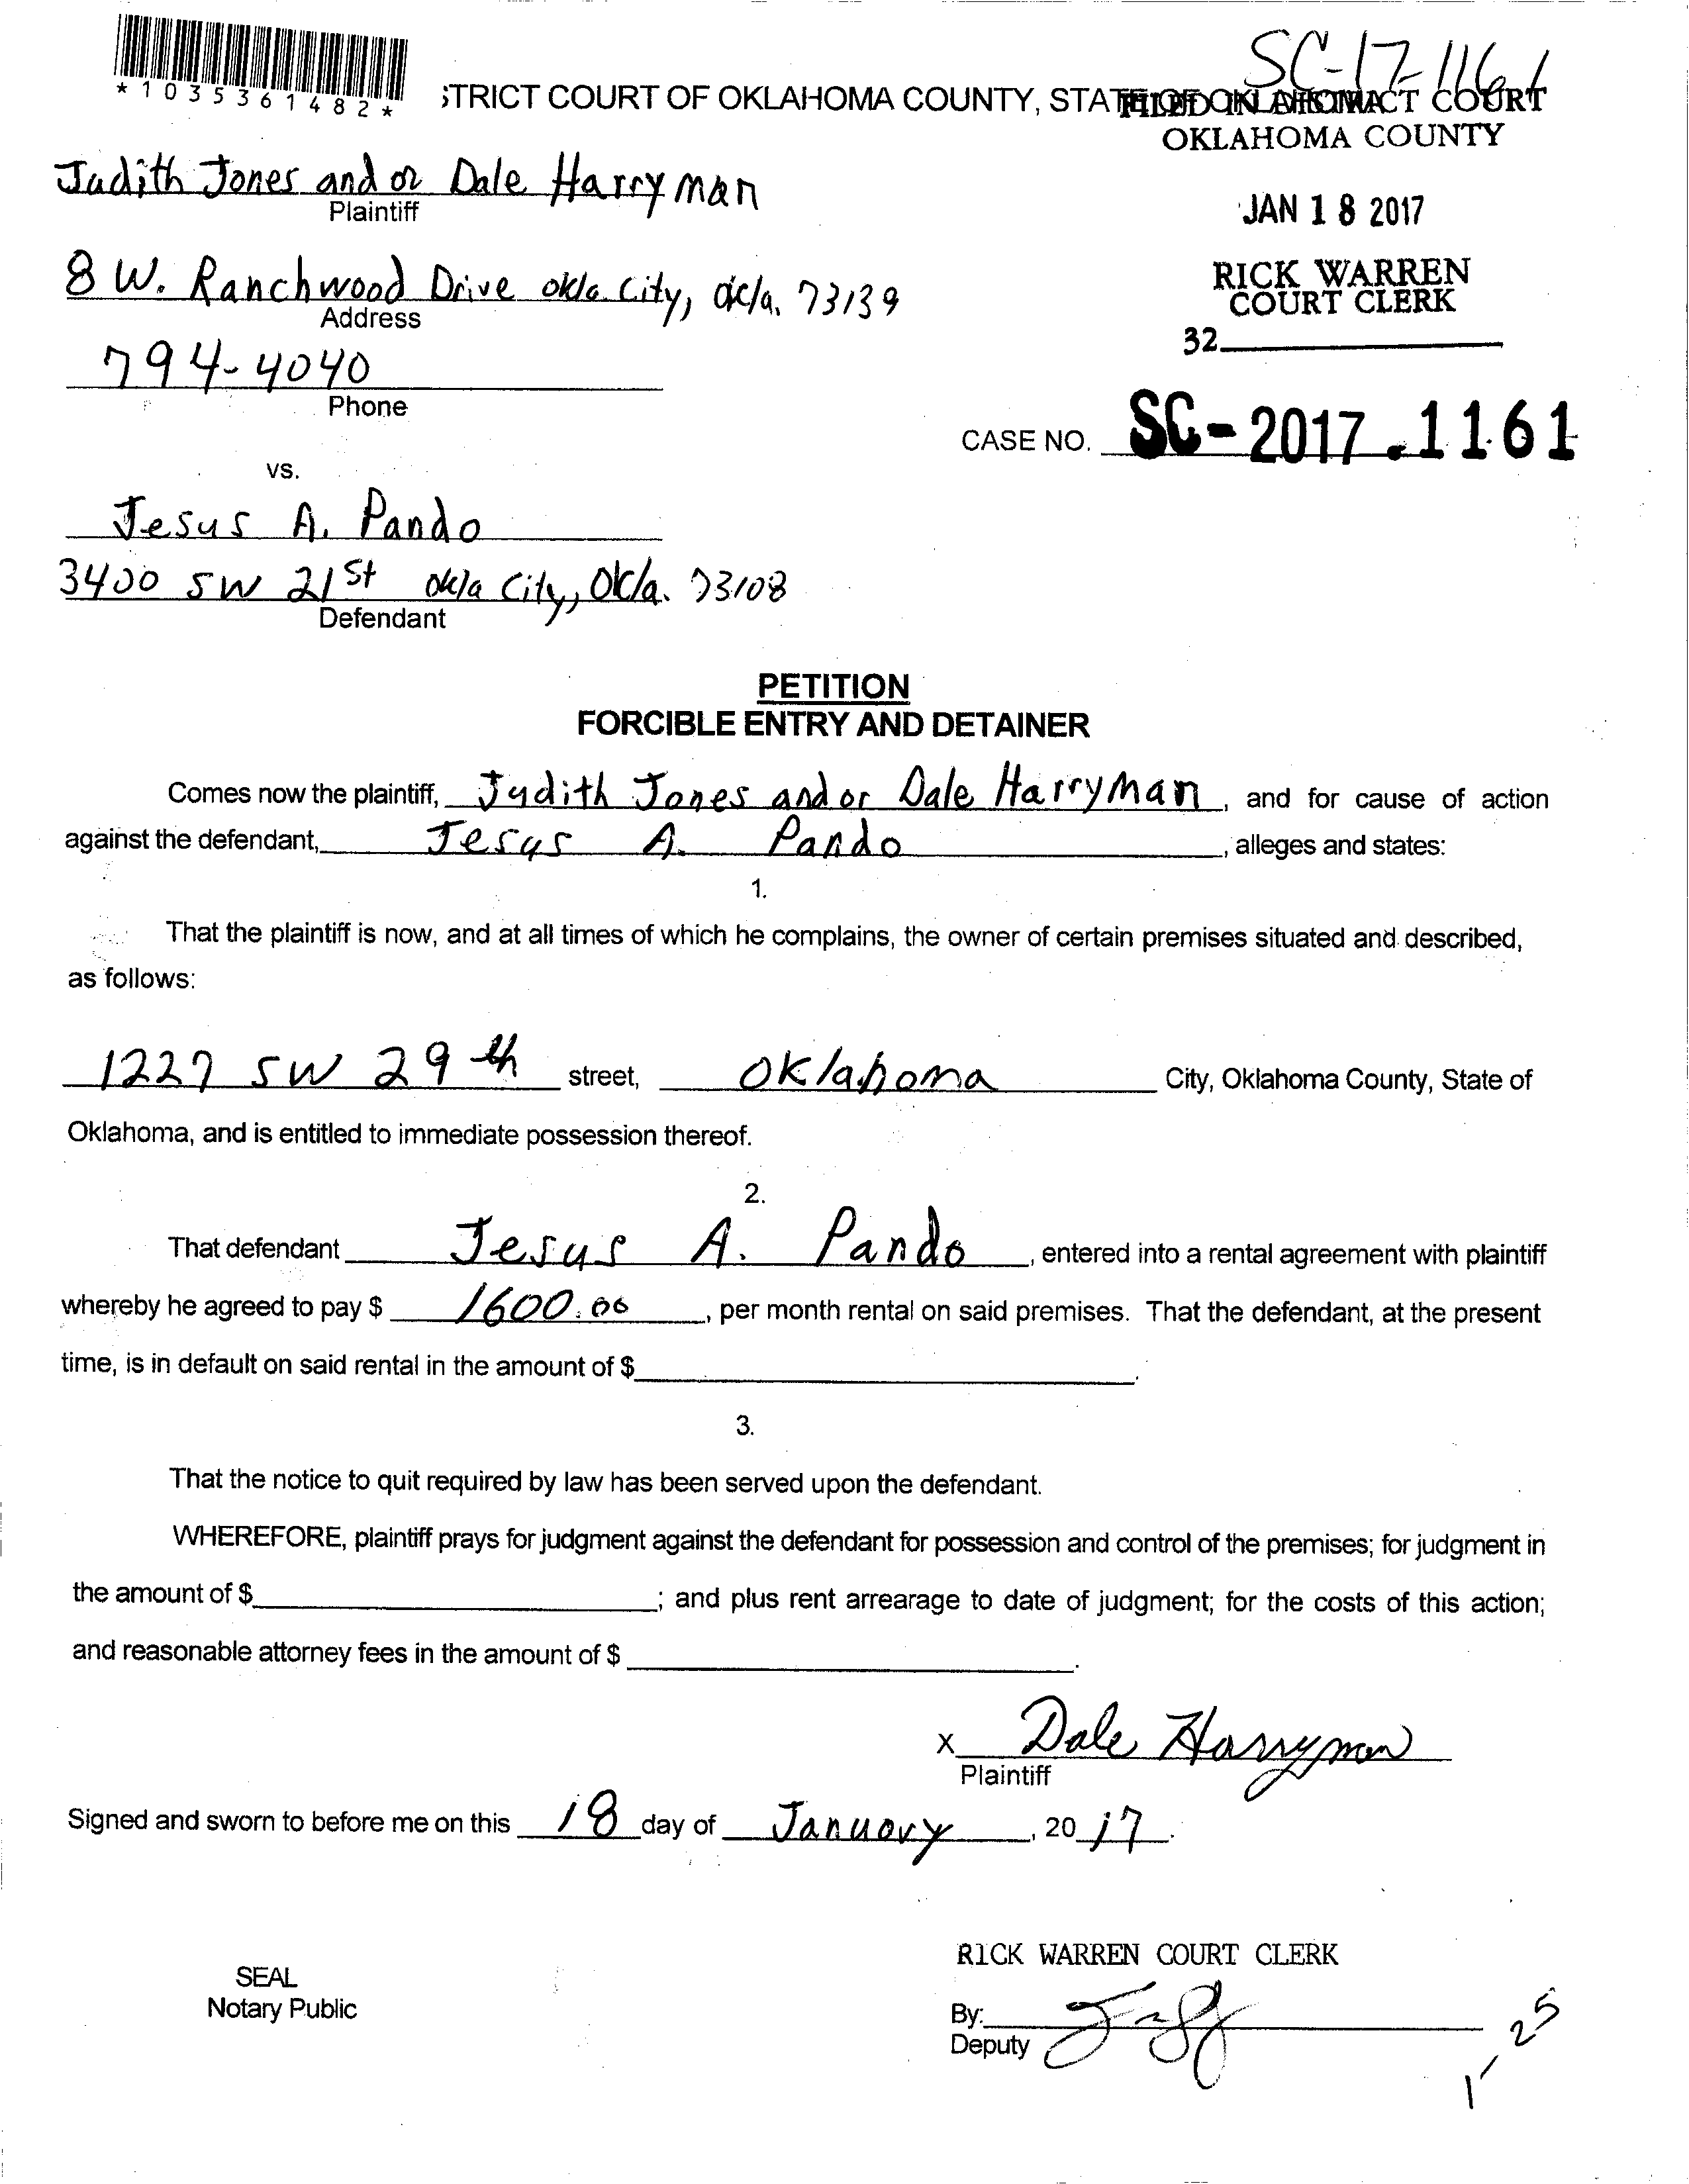 SC-17-1161
*1035361482*
STRICT COURT OF OKLAHOMA COUNTY, STATE OF OKLAHOMA
FILED IN DISTRICT COURT
OKLAHOMA COUNTY
Judith Jones and or Dale Harryman
Plaintiff
JAN 18 2017
8 W. Ranchwood Drive okla. City, Okla. 73139
Address
RICK WARREN
COURT CLERK
32
794-4040
Phone
CASE NO. SC-2017.1161
vs.
Jesus A. Pando
3400 SW 21st okla City, Okla. 73108
Defendant
PETITION
FORCIBLE ENTRY AND DETAINER
Comes now the plaintiff, Judith Jones and or Dale Harryman, and for cause of action
against the defendant, Jesus A. Pando, alleges and states:
1.
That the plaintiff is now, and at all times of which he complains, the owner of certain premises situated and described,
as follows:
1227 SW 29th street, Oklahoma City, Oklahoma County, State of
Oklahoma, and is entitled to immediate possession thereof.
2.
That defendant Jesus A. Pando, entered into a rental agreement with plaintiff
whereby he agreed to pay $ 1600.00, per month rental on said premises. That the defendant, at the present
time, is in default on said rental in the amount of $.
3.
That the notice to quit required by law has been served upon the defendant.
WHEREFORE, plaintiff prays for judgment against the defendant for possession and control of the premises; for judgment in
the amount of $; and plus rent arrearage to date of judgment; for the costs of this action;
and reasonable attorney fees in the amount of $.
x Dale Harryman
Plaintiff
Signed and sworn to before me on this 18 day of January, 2017.
RICK WARREN COURT CLERK
SEAL
Notary Public
By:
Deputy
1/25